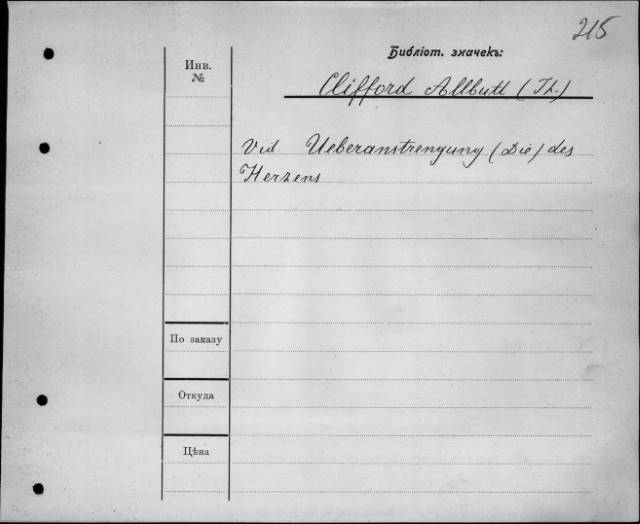 215
Библіот. значекъ:
Инв.
№
Clifford Allbutt (Th.)
Vid Ueberanstrengung (Die) des
Herzens
По заказу
Откуда
Цѣна